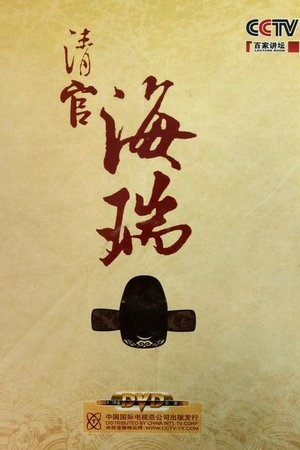 清官
海瑞
CCTV
百家讲坛
LECTURE ROOM
DVD
中国国际电视总公司出版发行
DISTRIBUTED BY CHINA INT'L TV CORP.
央视音像网店网: WWW.CCTV-YX.COM